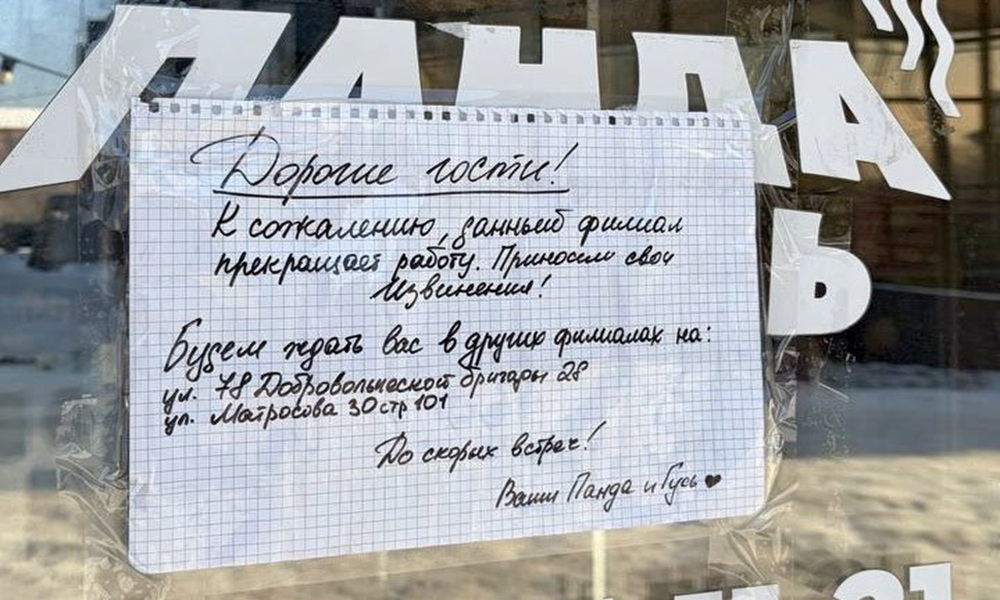 ПАНДА
Ь
Дорогие гости!
К сожалению, данный филиал
прекращает работу. Приносим свои
извинения!
Будем ждать вас в других филиалах на:
ул. 78 Добровольческой бригады 28
ул. Матросова 30 стр 101
До скорых встреч!
Ваши Панда и Гусь ♥
21